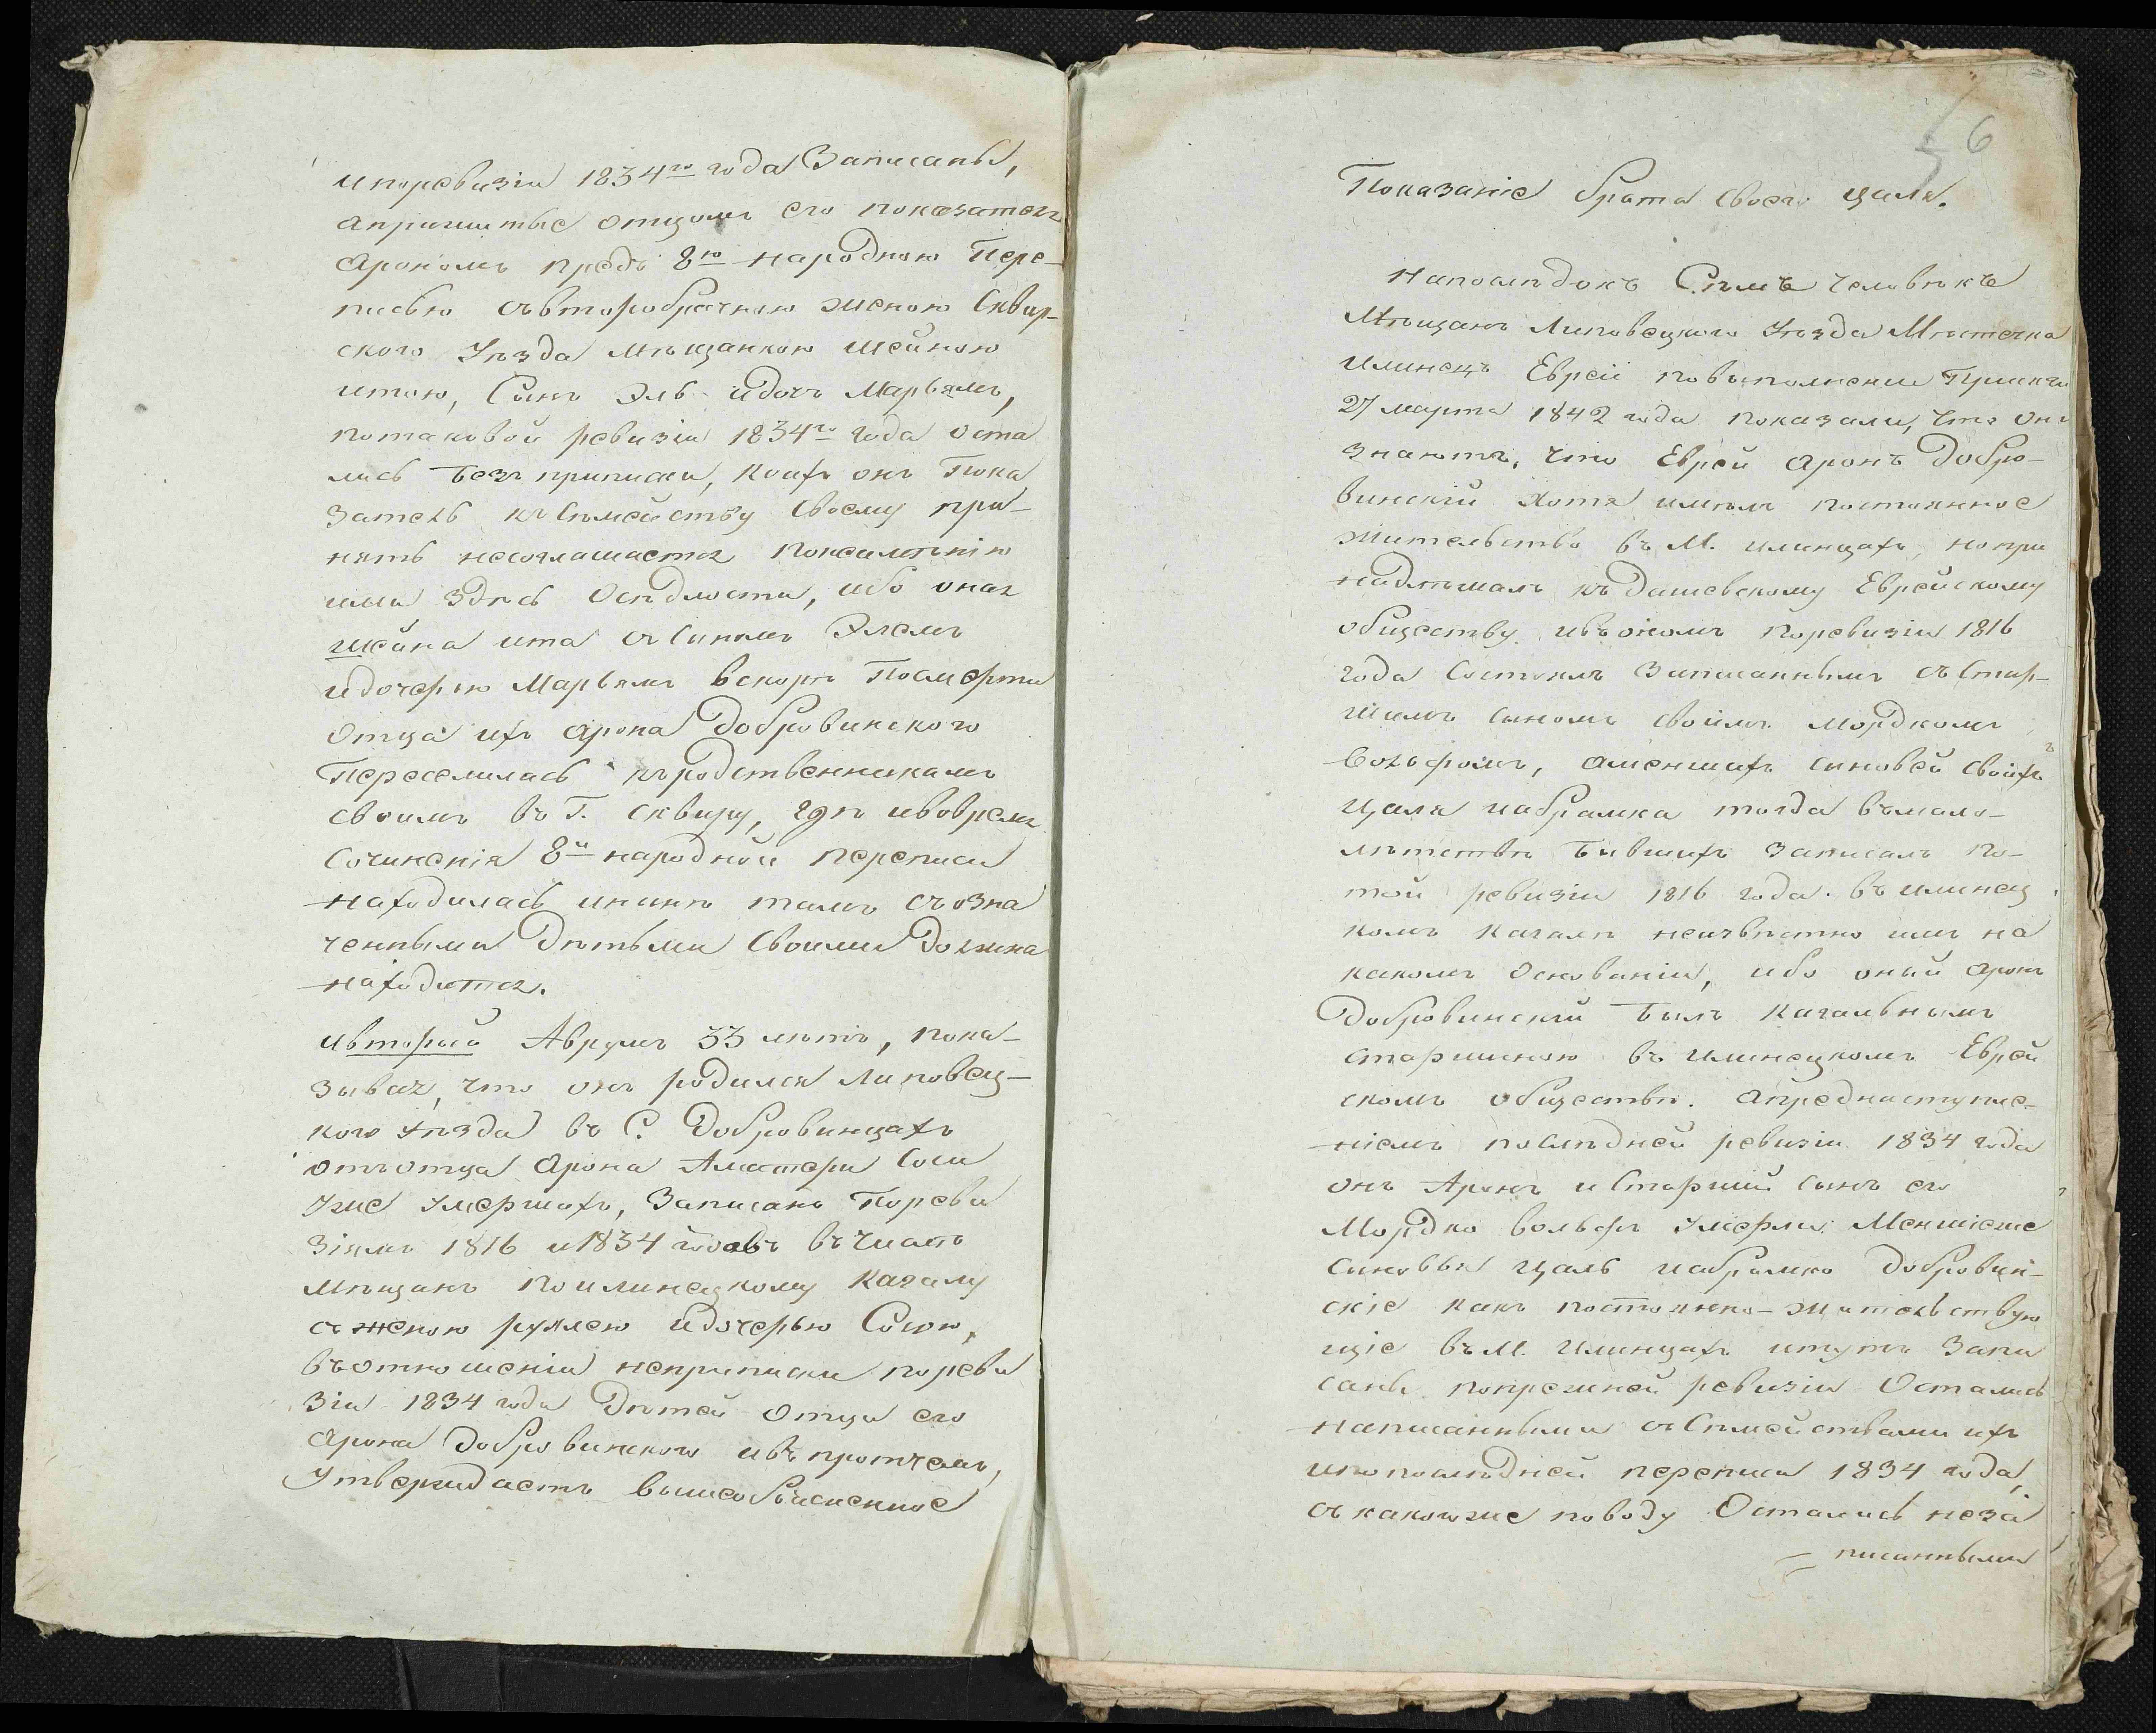 и поревизіи 1834го года Записаны,
априжитые отцомъ его показателя
Арономъ предъ 8ю народною Пере-
писью съвторобрачною женою Сквир-
ского Уѣзда мѣщанкою шейною
итою, Сынъ Эль идочь Марьямъ,
потаковой ревизіи 1834го года оста
лись безъ приписки, коихъ онъ Пока
затель къ Сѣмейству своему при-
нять несоглашается понеимѣнію
ими здѣсь Осѣдлости, ибо оная
шейна ита съ Сыномъ Элемъ
идочерью Марьямъ вскорѣ Посмерти
Отца ихъ Арона Добровинского
Переселилась къродственникамъ
своимъ въ Г. Сквиру, гдѣ ивовремя
Сочиненія 8й народной переписи
находилась инынѣ тамъ съозна
ченными Дѣтьми Своими Должна
находится.
ивторый Аврумъ 33 лѣтъ, пока-
зывая, что онъ родился Липовец-
кого уѣзда въ С. Добровинцахъ
отъ отца Арона Аматери Соси
Уже умершихъ, Записанъ Пореви
зіямъ 1816 и 1834 годовъ въ Числѣ
мѣщанъ поилинецкому Кагалу
съ женою рухлею идочерью Сосею,
въотношеніи неприписки пореви
зіи 1834 года Дѣтей Отца его
Арона Добровинского ивъ протчемъ,
Утверждаетъ вышеобъясненное
6
Показаніе брата своего Цаля.
Напослѣдокъ Сѣмъ человѣкъ
Мѣщанъ Липовецкого Уѣзда Мѣстечка
Илинецъ Евреи повыполненіи Присяги
27 марта 1842 года показали, что они
знаютъ, что Еврей Аронъ Добро-
винскій Хотя имѣлъ постоянное
жительство въ М. Илинцахъ, но при
надлѣжалъ къ Дашевскому Еврейскому
обществу ивъ ономъ поревизіи 1816
года Состоялъ Записаннымъ съ Стар-
шимъ сыномъ своимъ Мордкомъ
Вольфомъ, аменшихъ сыновей своихъ
Цаля иабрамка тогда въмало-
лѣтствѣ бывшихъ записалъ по-
той ревизіи 1816 года въ илинец
комъ кагалѣ неизвѣстно имъ на
какомъ Основаніи, ибо оный аронъ
Добровинскій былъ кагальнымъ
старшиною въ илинецкомъ Еврей
скомъ обществѣ. Апредъ наступле-
ніемъ послѣдней ревизіи 1834 года
онъ Аронъ и Старшій сынъ его
Мордко вольфъ умерли. Меншіеже
сыновья Цаль иабрамко Добровин-
скіе какъ постоянно-жительствую
щіе въ М. Илинцахъ итутъ Запи
саны попрежней ревизіи Остались
написанными съ Сѣмействами ихъ
ипопослѣдней переписи 1834 года,
съ какогоже поводу Остались неза
писанными